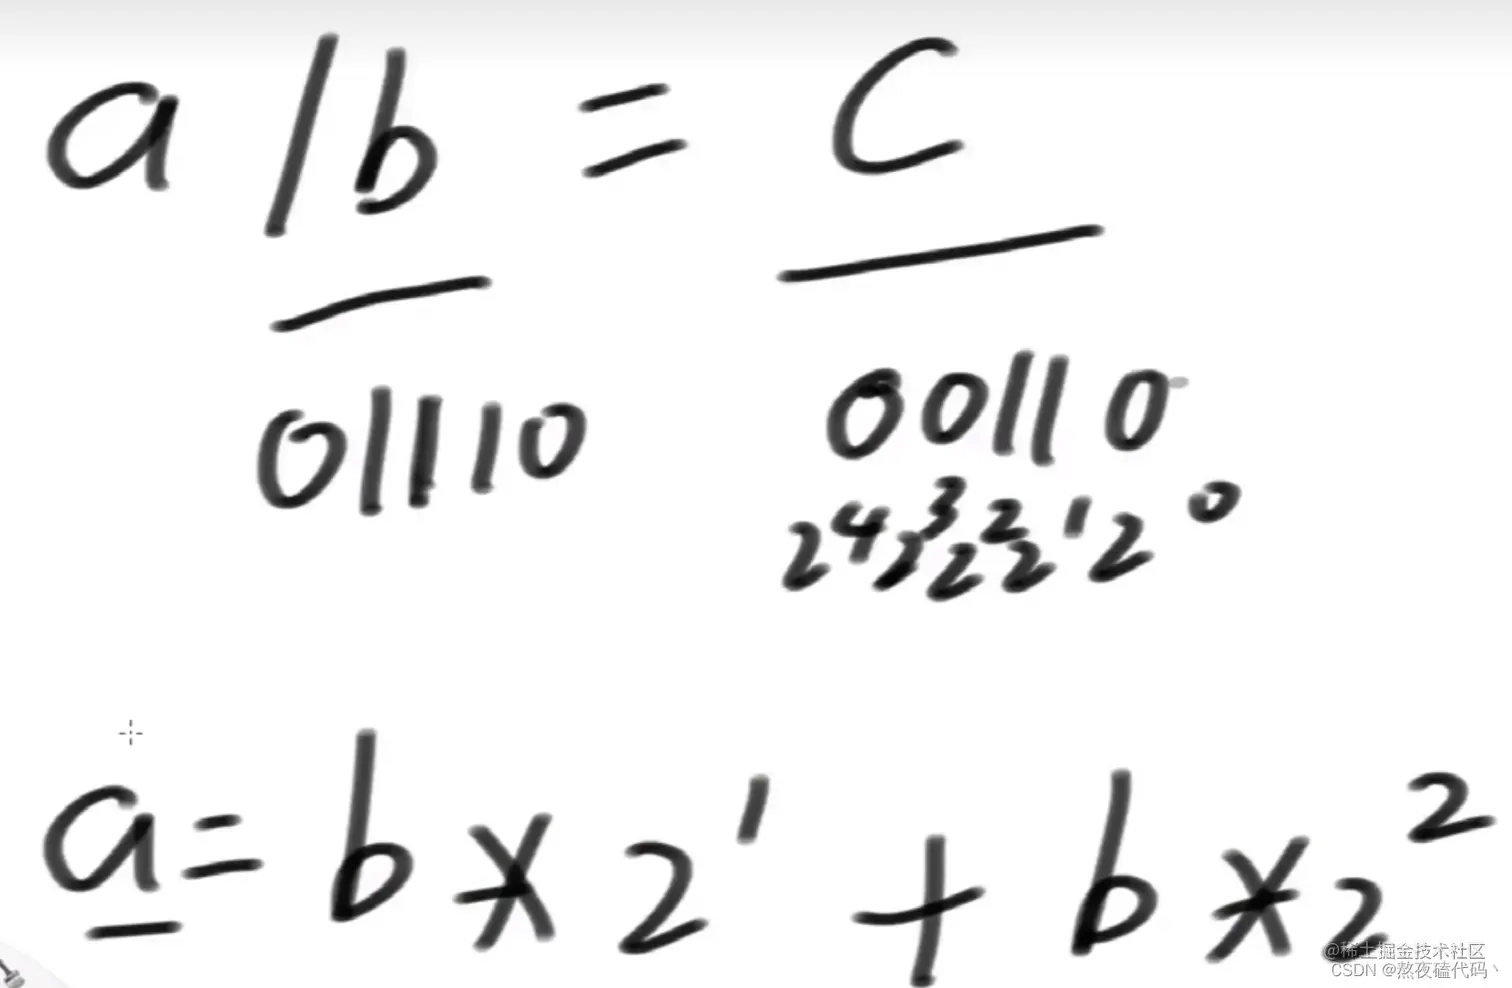 a / b = c
01110 00110
2⁴ 2³ 2² 2¹ 2⁰
a = b * 2¹ + b * 2²
@稀土掘金技术社区
CSDN @熬夜磕代码丶